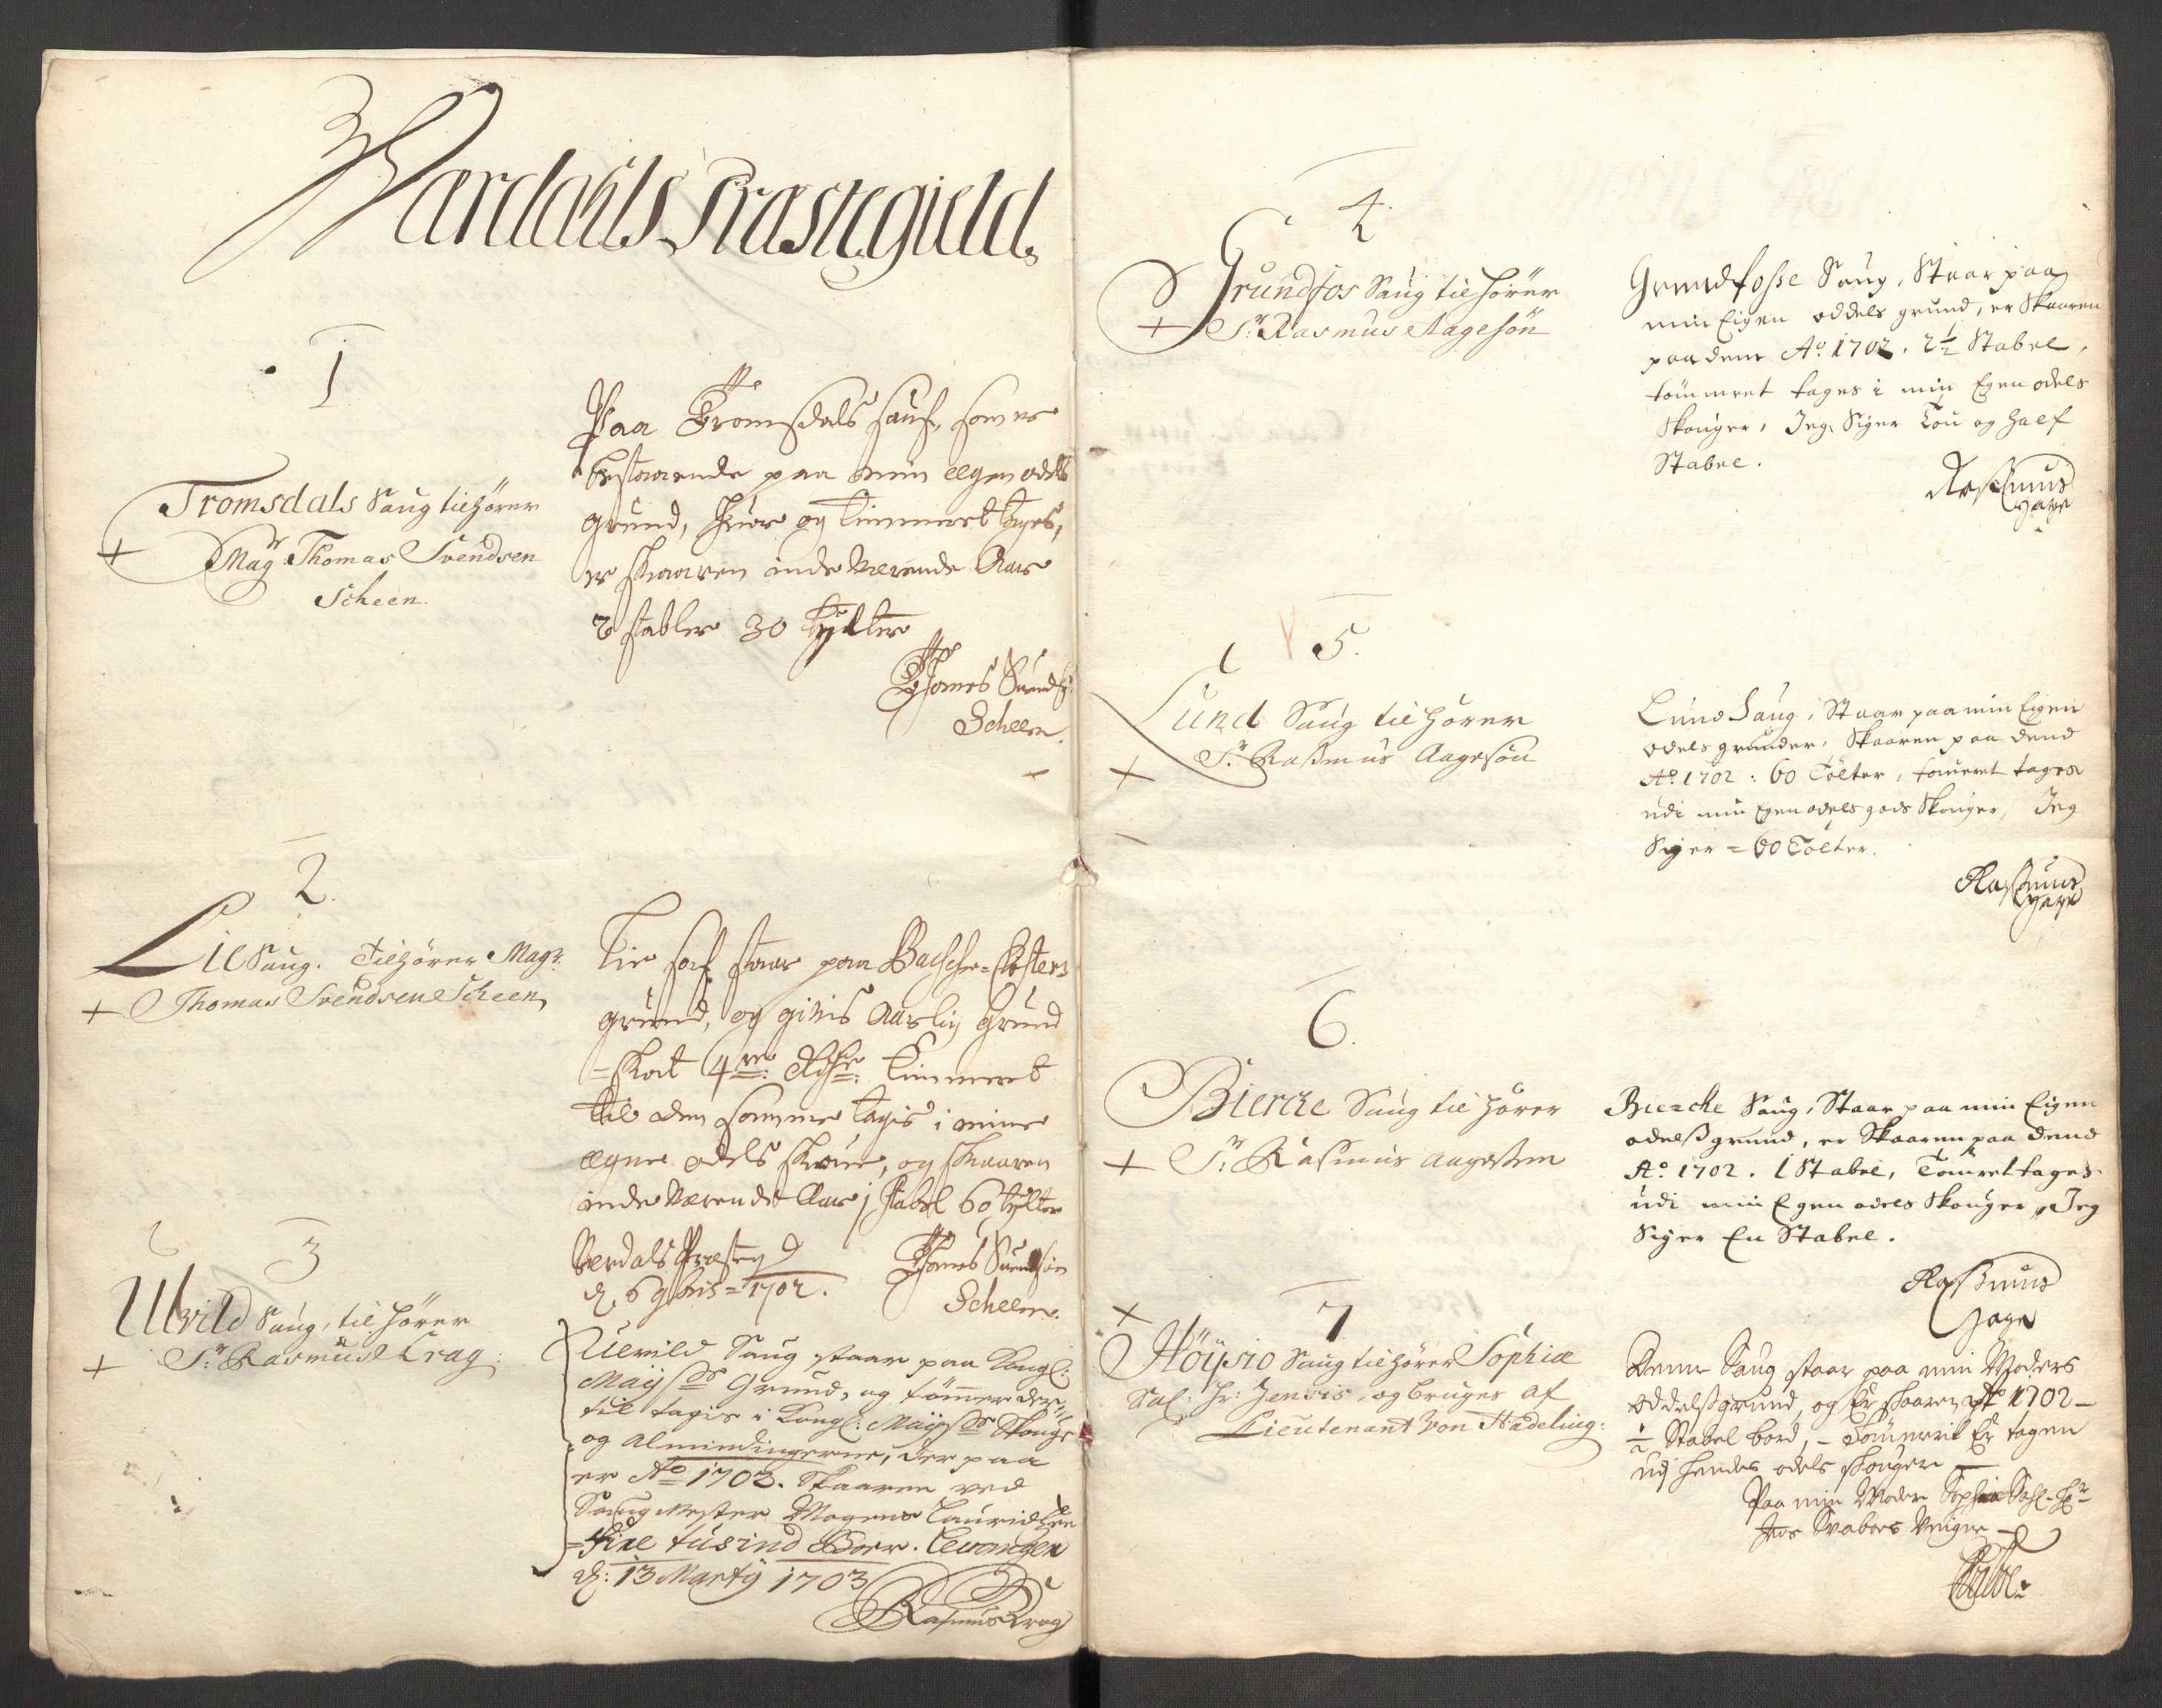 Wærdahls Præstegield.
1
Tromsdals Saug tilhörer
+ Magr. Thomas Svendsen
Scheen.
Paa Tromsdals sauf, som er
bestaaende paa min egen odels
grund, huor og Timmeret tages,
er skaaren inde Værende Aar
2 stabler 30 tÿlter
Thomes Suends:
Scheen.
2.
Lie Saug. tilhörer Magr.
+ Thomas Svendsen Scheen
Lie sauf staar paa Bachche-Closters
grund, og gifvis Aarlig Grund
=skat 4re Rdhr. Timmeret
til den samme tagis i mine
egne odels skoue, og skaaren
inde Værende Aar 1 stabel 60 tÿlter
Verdals Præsteg
d. 6 9bris = 1702.
Thomes Suendsøn
Scheen.
3
Ulvild Saug, tilhörer
+ Sr. Rasmus Krag.
Ulvild Saug staar paa Kongl:
Maÿsts Grund, og tömmer der
til tagis i Kongl: Maÿsts Skouge
og Almindingerne, der paa
er Ao 1702. Skaaren ved
Saugmester Mogens Lauridtzen
=Fire tusind Borr. Levanger
d: 13 Martÿ 1703
Rasmus Krag
4.
Grundfos Saug tilhörer
+ Sr. Rasmus Aagesön
Grundfosse Saug, Staar paa
min Eigen oddels grund, er Skaaren
paa dem Ao. 1702. 2½ Stabel,
tömmeret tages i min Egen odels
Skouger, Jeg Siger Tou og half
Stabel.
Rasmus
Hage
5.
Lund Saug tilhörer
+ Sr. Rasmus Aagesön
Lund Saug, Staar paa min Eigen
odels grunder, Skaaren paa dend
Ao. 1702: 60 Tölter, tömeret tages
udi min Egen odels gods Skouger, Jeg
Siger = 60 Tölter.
Rasmus
Hage
6.
Biercke Saug tilhörer
+ Sr. Rasmus Aagesøn
Biercke Saug, Staar paa min Eigen
odelss grund, er Skaaren paa dend
Ao. 1702. 1 Stabel, Tömret tages
udi min Egen odels Skouger, Jeg
Siger En Stabel.
Rasmus
Hage
+
7
Höÿsio Saug tilhörer Sophiæ
Sal: Hr: Jensis, og bruges af
Lieutenant Von Hadeling:
Denne Saug staar paa min Moders
oddelssgrund, og Er skaaren Ao 1702 –
½ Stabel bord, – Tömerrit Er tagen
udj hendes odels skouger –
Paa min Moder Sophia Sahl. Hr
Jens Vegne –